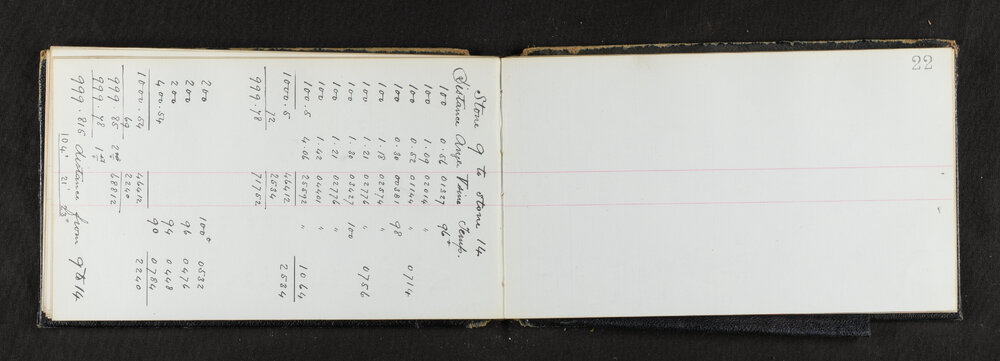 22
Stone 9 to stone 14
Distance Angle V sine Temp.
100 0.56 01327 96+
100 1.09 02014 "
100 0.52 01144 " 0714
100 0.30 00381 98
100 1.18 02574 "
100 1.21 02776 " 0756
100 1.30 03427 100
100 1.21 02776 "
100 1.42 04401 "
100.5 4.06 25592 " 1064
1000.5 46412 2534
72 2534
999.78 71752
200 100° 0532
200 96 0476
200 94 0448
400.54 90 0784
1000.54 46412 2240
69 2240
999.85 2nd 48812
999.78 1st
999.815 distance from 9 to 14
104' 21' 23"